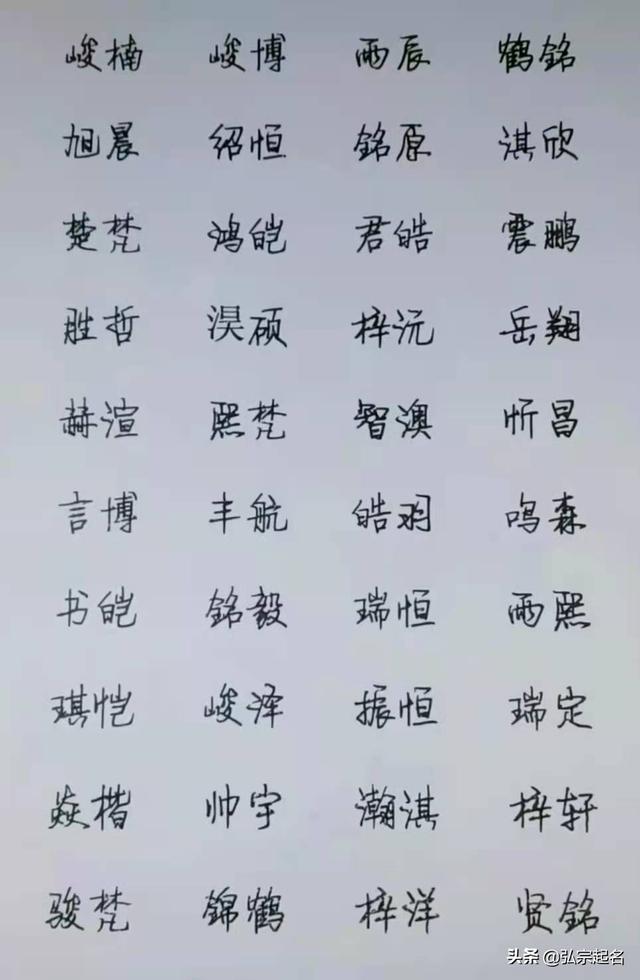 峻楠 峻博 雨辰 鹤铭
旭晨 绍恒 铭原 淇欣
楚梵 鸿皑 君皓 震鹏
胜哲 淏硕 梓沅 岳翔
赫渲 熙梵 智澳 忻昌
言博 丰航 皓羽 鸣森
书皑 铭毅 瑞恒 雨熙
琪恺 峻泽 振恒 瑞定
焱楷 帅宇 瀚淇 梓轩
骏梵 锦鹤 梓洋 贤铭
头条 @弘宗起名